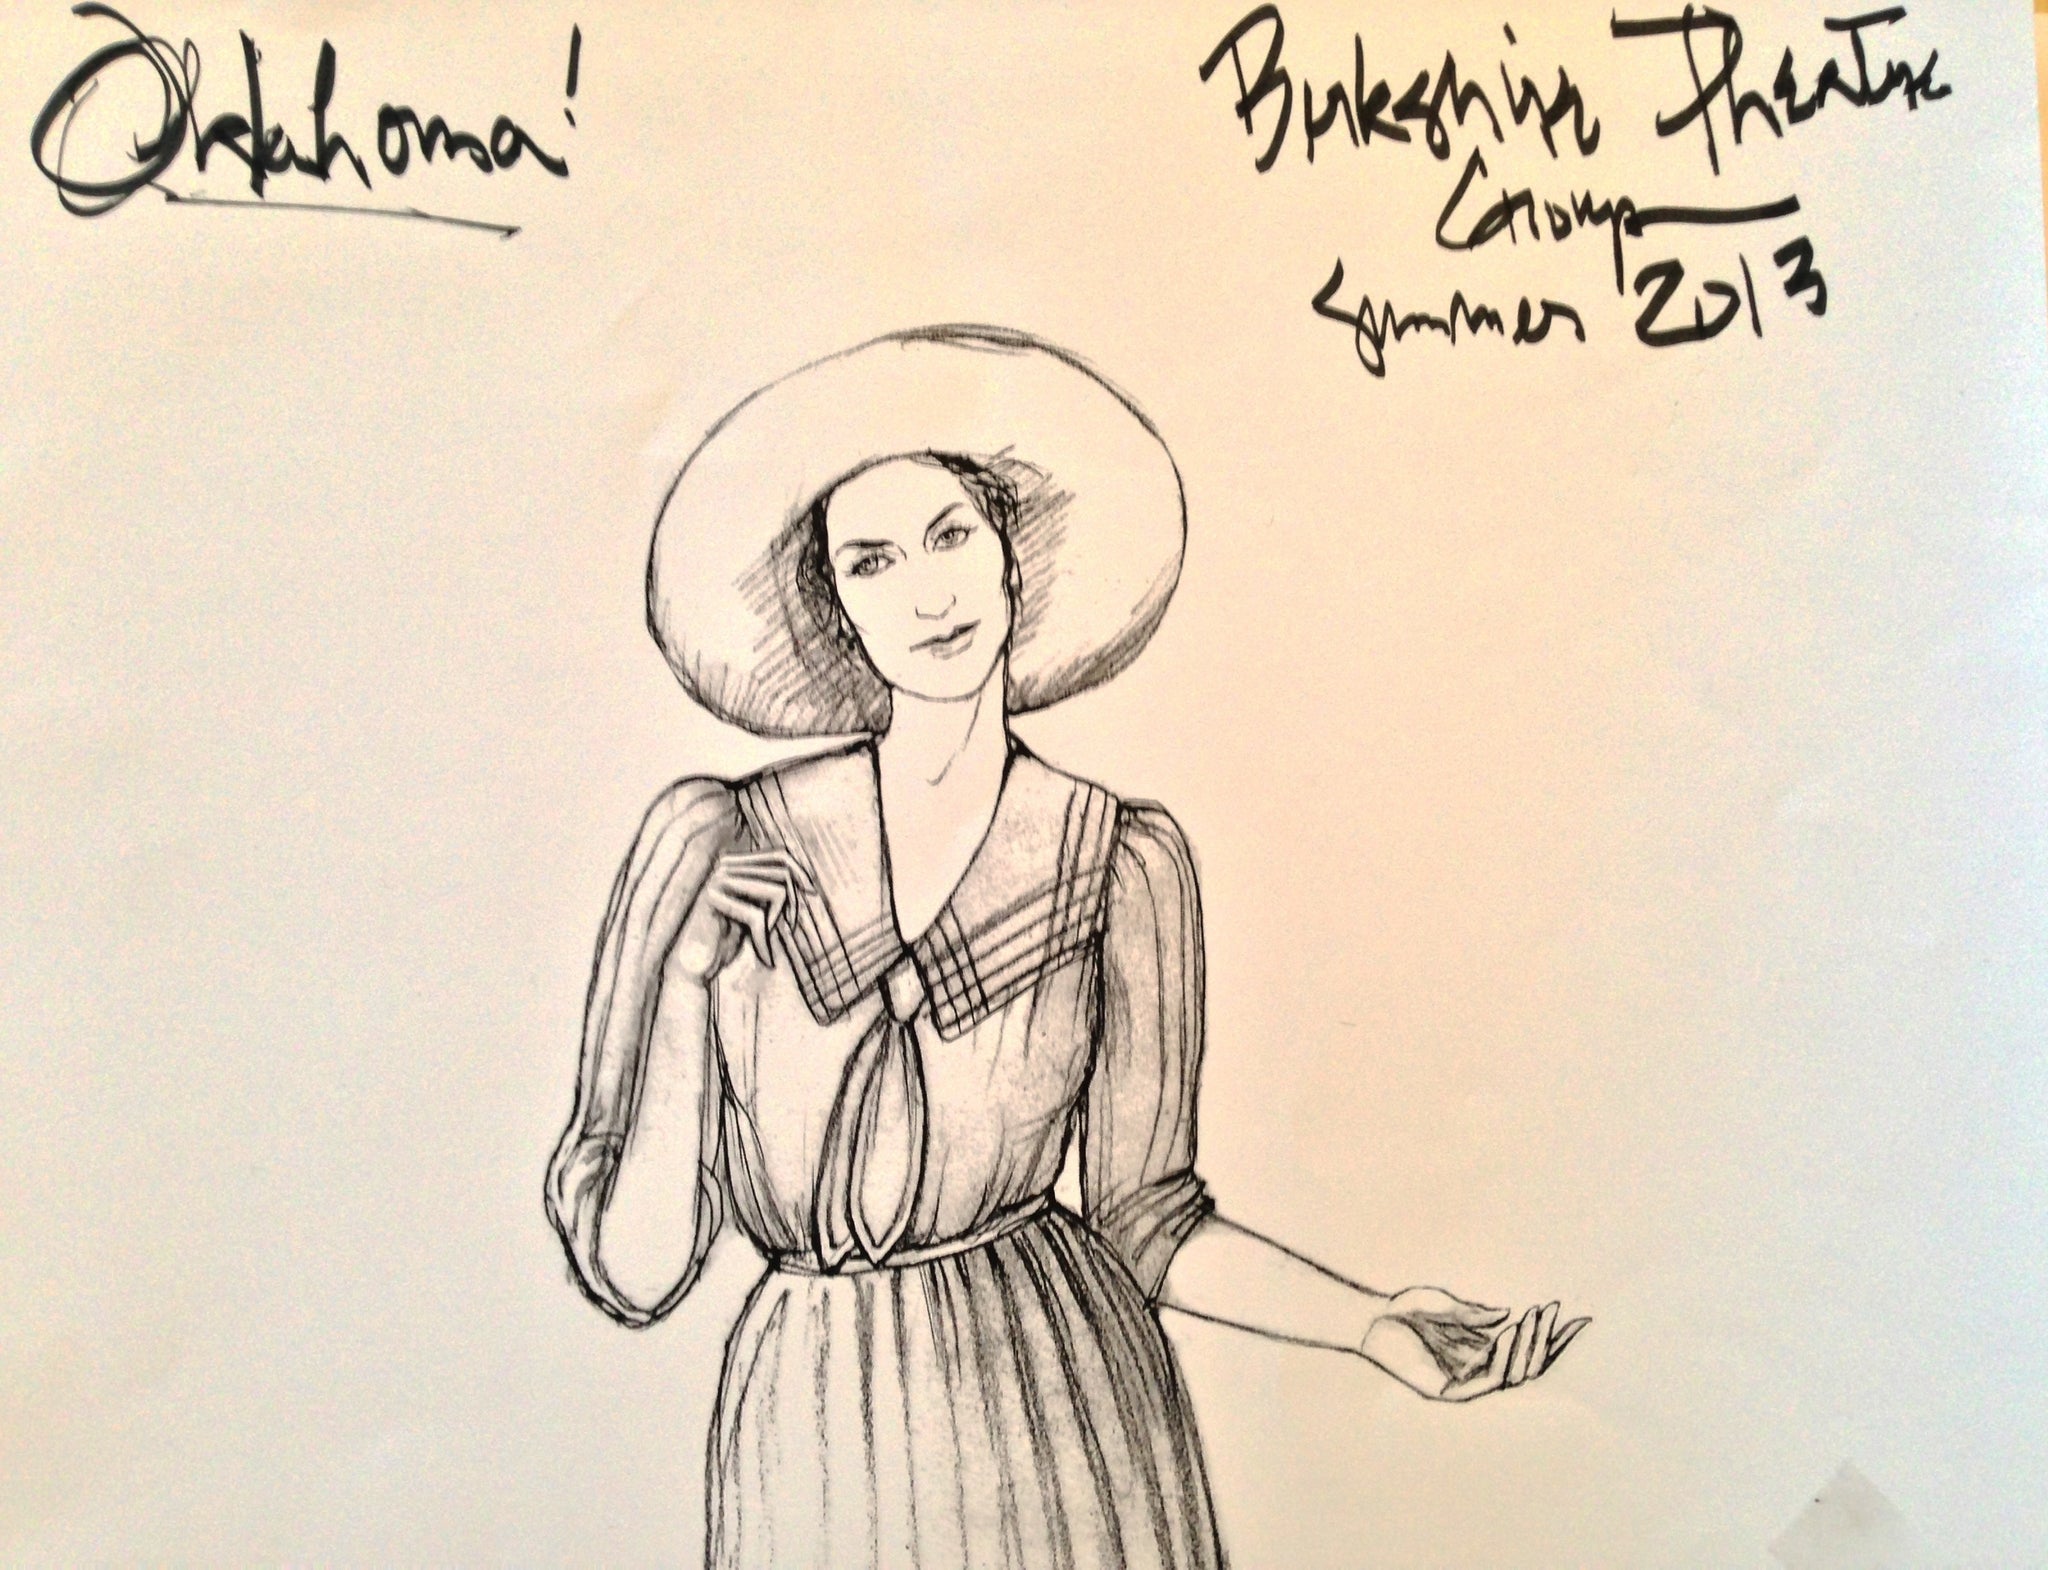 Oklahoma!
Berkshire Theatre
Group
Summer 2013